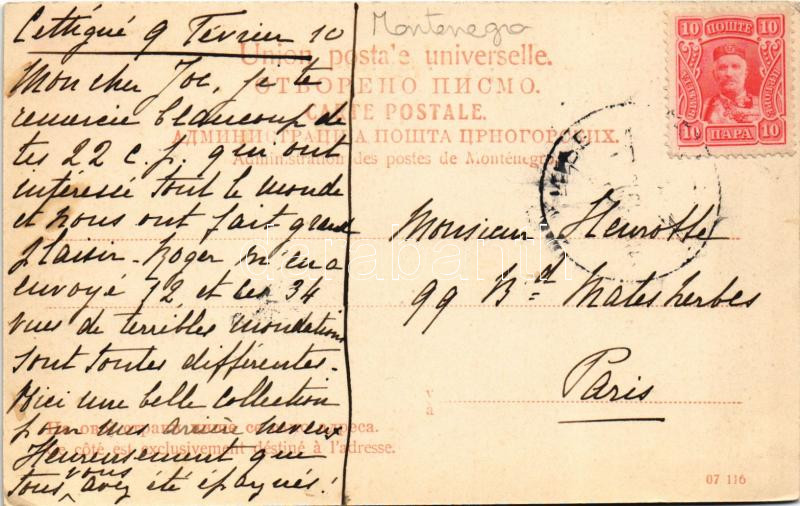 Cettigné 9 Février 10
Mon cher Joe, je te
remercie beaucoup de
tes 22 c.p. qui ont
intéressé tout le monde
et nous ont fait grand
plaisir - Roger m'en a
envoyé 12, et les 34
vues de terribles inondations
sont toutes différentes -
Voici une belle collection
pour nos arrière neveux
Heureusement que
vous
tous avez été épargnés!
Montenegro
Union postale universelle.
ОТВОРЕНО ПИСМО.
CARTE POSTALE.
АДМИНИСТРАЦИЈА ПОШТА ЦРНОГОРСКИХ.
Administration des postes de Monténégro
10 ПОШТЕ 10
10 ПАРА 10
Monsieur Heurotte
99 Bd Malesherbes
Paris
у
à
côté est exclusivement destiné à l'adresse.
07 116
darabanth